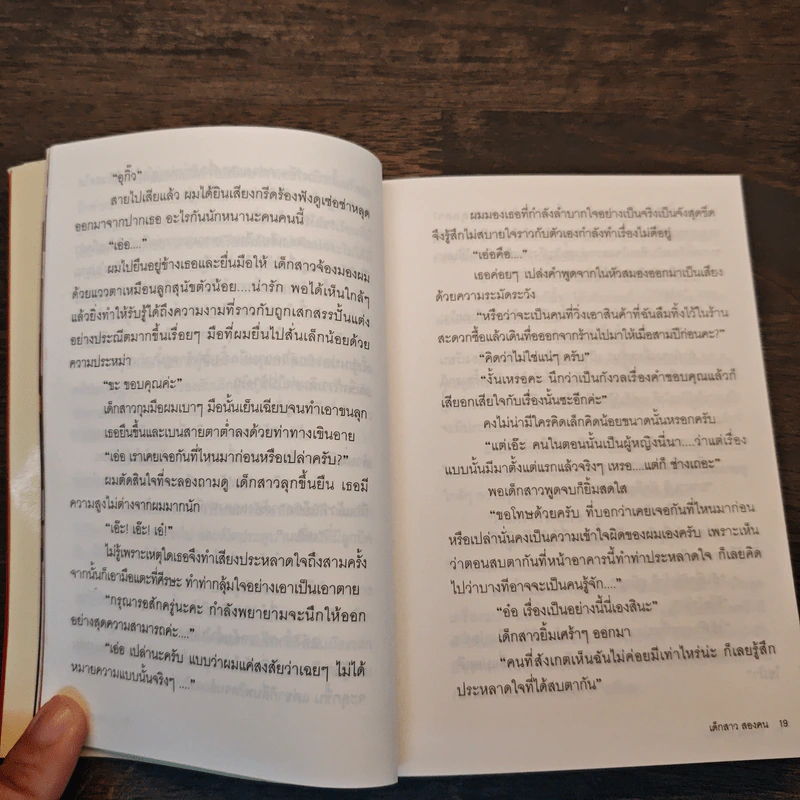 “อุกิ๊ว”
สายไปเสียแล้ว ผมได้ยินเสียงกรีดร้องฟังดูเซ่อซ่าหลุด
ออกมาจากปากเธอ อะไรกันนักหนานะคนคนนี้
“เอ่อ....”
ผมไปยืนอยู่ข้างเธอและยื่นมือให้ เด็กสาวจ้องมองผม
ด้วยแววตาเหมือนลูกสุนัขตัวน้อย....น่ารัก พอได้เห็นใกล้ๆ
แล้วยิ่งทำให้รับรู้ได้ถึงความงามที่ราวกับถูกเสกสรรปั้นแต่ง
อย่างประณีตมากขึ้นเรื่อยๆ มือที่ผมยื่นไปสั่นเล็กน้อยด้วย
ความประหม่า
“ขะ ขอบคุณค่ะ”
เด็กสาวกุมมือผมเบาๆ มือนั้นเย็นเฉียบจนทำเอาขนลุก
เธอยืนขึ้นและเบนสายตาต่ำลงด้วยท่าทางเขินอาย
“เอ่อ เราเคยเจอกันที่ไหนมาก่อนหรือเปล่าครับ?”
ผมตัดสินใจที่จะลองถามดู เด็กสาวลุกขึ้นยืน เธอมี
ความสูงไม่ต่างจากผมมากนัก
“เอ๊ะ! เอ๊ะ! เอ๋!”
ไม่รู้เพราะเหตุใดเธอจึงทำเสียงประหลาดใจถึงสามครั้ง
จากนั้นก็เอามือแตะที่ศีรษะ ทำท่ากลุ้มใจอย่างเอาเป็นเอาตาย
“กรุณารอสักครู่นะคะ กำลังพยายามจะนึกให้ออก
อย่างสุดความสามารถค่ะ....”
“เอ่อ เปล่านะครับ แบบว่าผมแค่สงสัยว่าเฉยๆ ไม่ได้
หมายความแบบนั้นจริงๆ ....”
ผมมองเธอที่กำลังลำบากใจอย่างเป็นจริงเป็นจังสุดขีด
จึงรู้สึกไม่สบายใจราวกับตัวเองกำลังทำเรื่องไม่ดีอยู่
“เอ่อคือ....”
เธอค่อยๆ เปล่งคำพูดจากในหัวสมองออกมาเป็นเสียง
ด้วยความระมัดระวัง
“หรือว่าจะเป็นคนที่วิ่งเอาสินค้าที่ฉันลืมทิ้งไว้ในร้าน
สะดวกซื้อแล้วเดินทื่อออกจากร้านไปมาให้เมื่อสามปีก่อนคะ?”
“คิดว่าไม่ใช่แน่ๆ ครับ”
“งั้นเหรอคะ นึกว่าเป็นกังวลเรื่องคำขอบคุณแล้วก็
เสียอกเสียใจกับเรื่องนั้นซะอีกค่ะ”
คงไม่น่ามีใครคิดเล็กคิดน้อยขนาดนั้นหรอกครับ
“แต่เอ๊ะ คนในตอนนั้นเป็นผู้หญิงนี่นา....ว่าแต่เรื่อง
แบบนั้นมีมาตั้งแต่แรกแล้วจริงๆ เหรอ....แต่ก็ ช่างเถอะ”
พอเด็กสาวพูดจบก็ยิ้มสดใส
“ขอโทษด้วยครับ ที่บอกว่าเคยเจอกันที่ไหนมาก่อน
หรือเปล่านั่นคงเป็นความเข้าใจผิดของผมเองครับ เพราะเห็น
ว่าตอนสบตากันที่หน้าอาคารนี้ทำท่าประหลาดใจ ก็เลยคิด
ไปว่าบางทีอาจจะเป็นคนรู้จัก....”
“อ๋อ เรื่องเป็นอย่างนี้นี่เองสินะ”
เด็กสาวยิ้มเศร้าๆ ออกมา
“คนที่สังเกตเห็นฉันไม่ค่อยมีเท่าไหร่น่ะ ก็เลยรู้สึก
ประหลาดใจที่ได้สบตากัน”
เด็กสาว สองคน 19